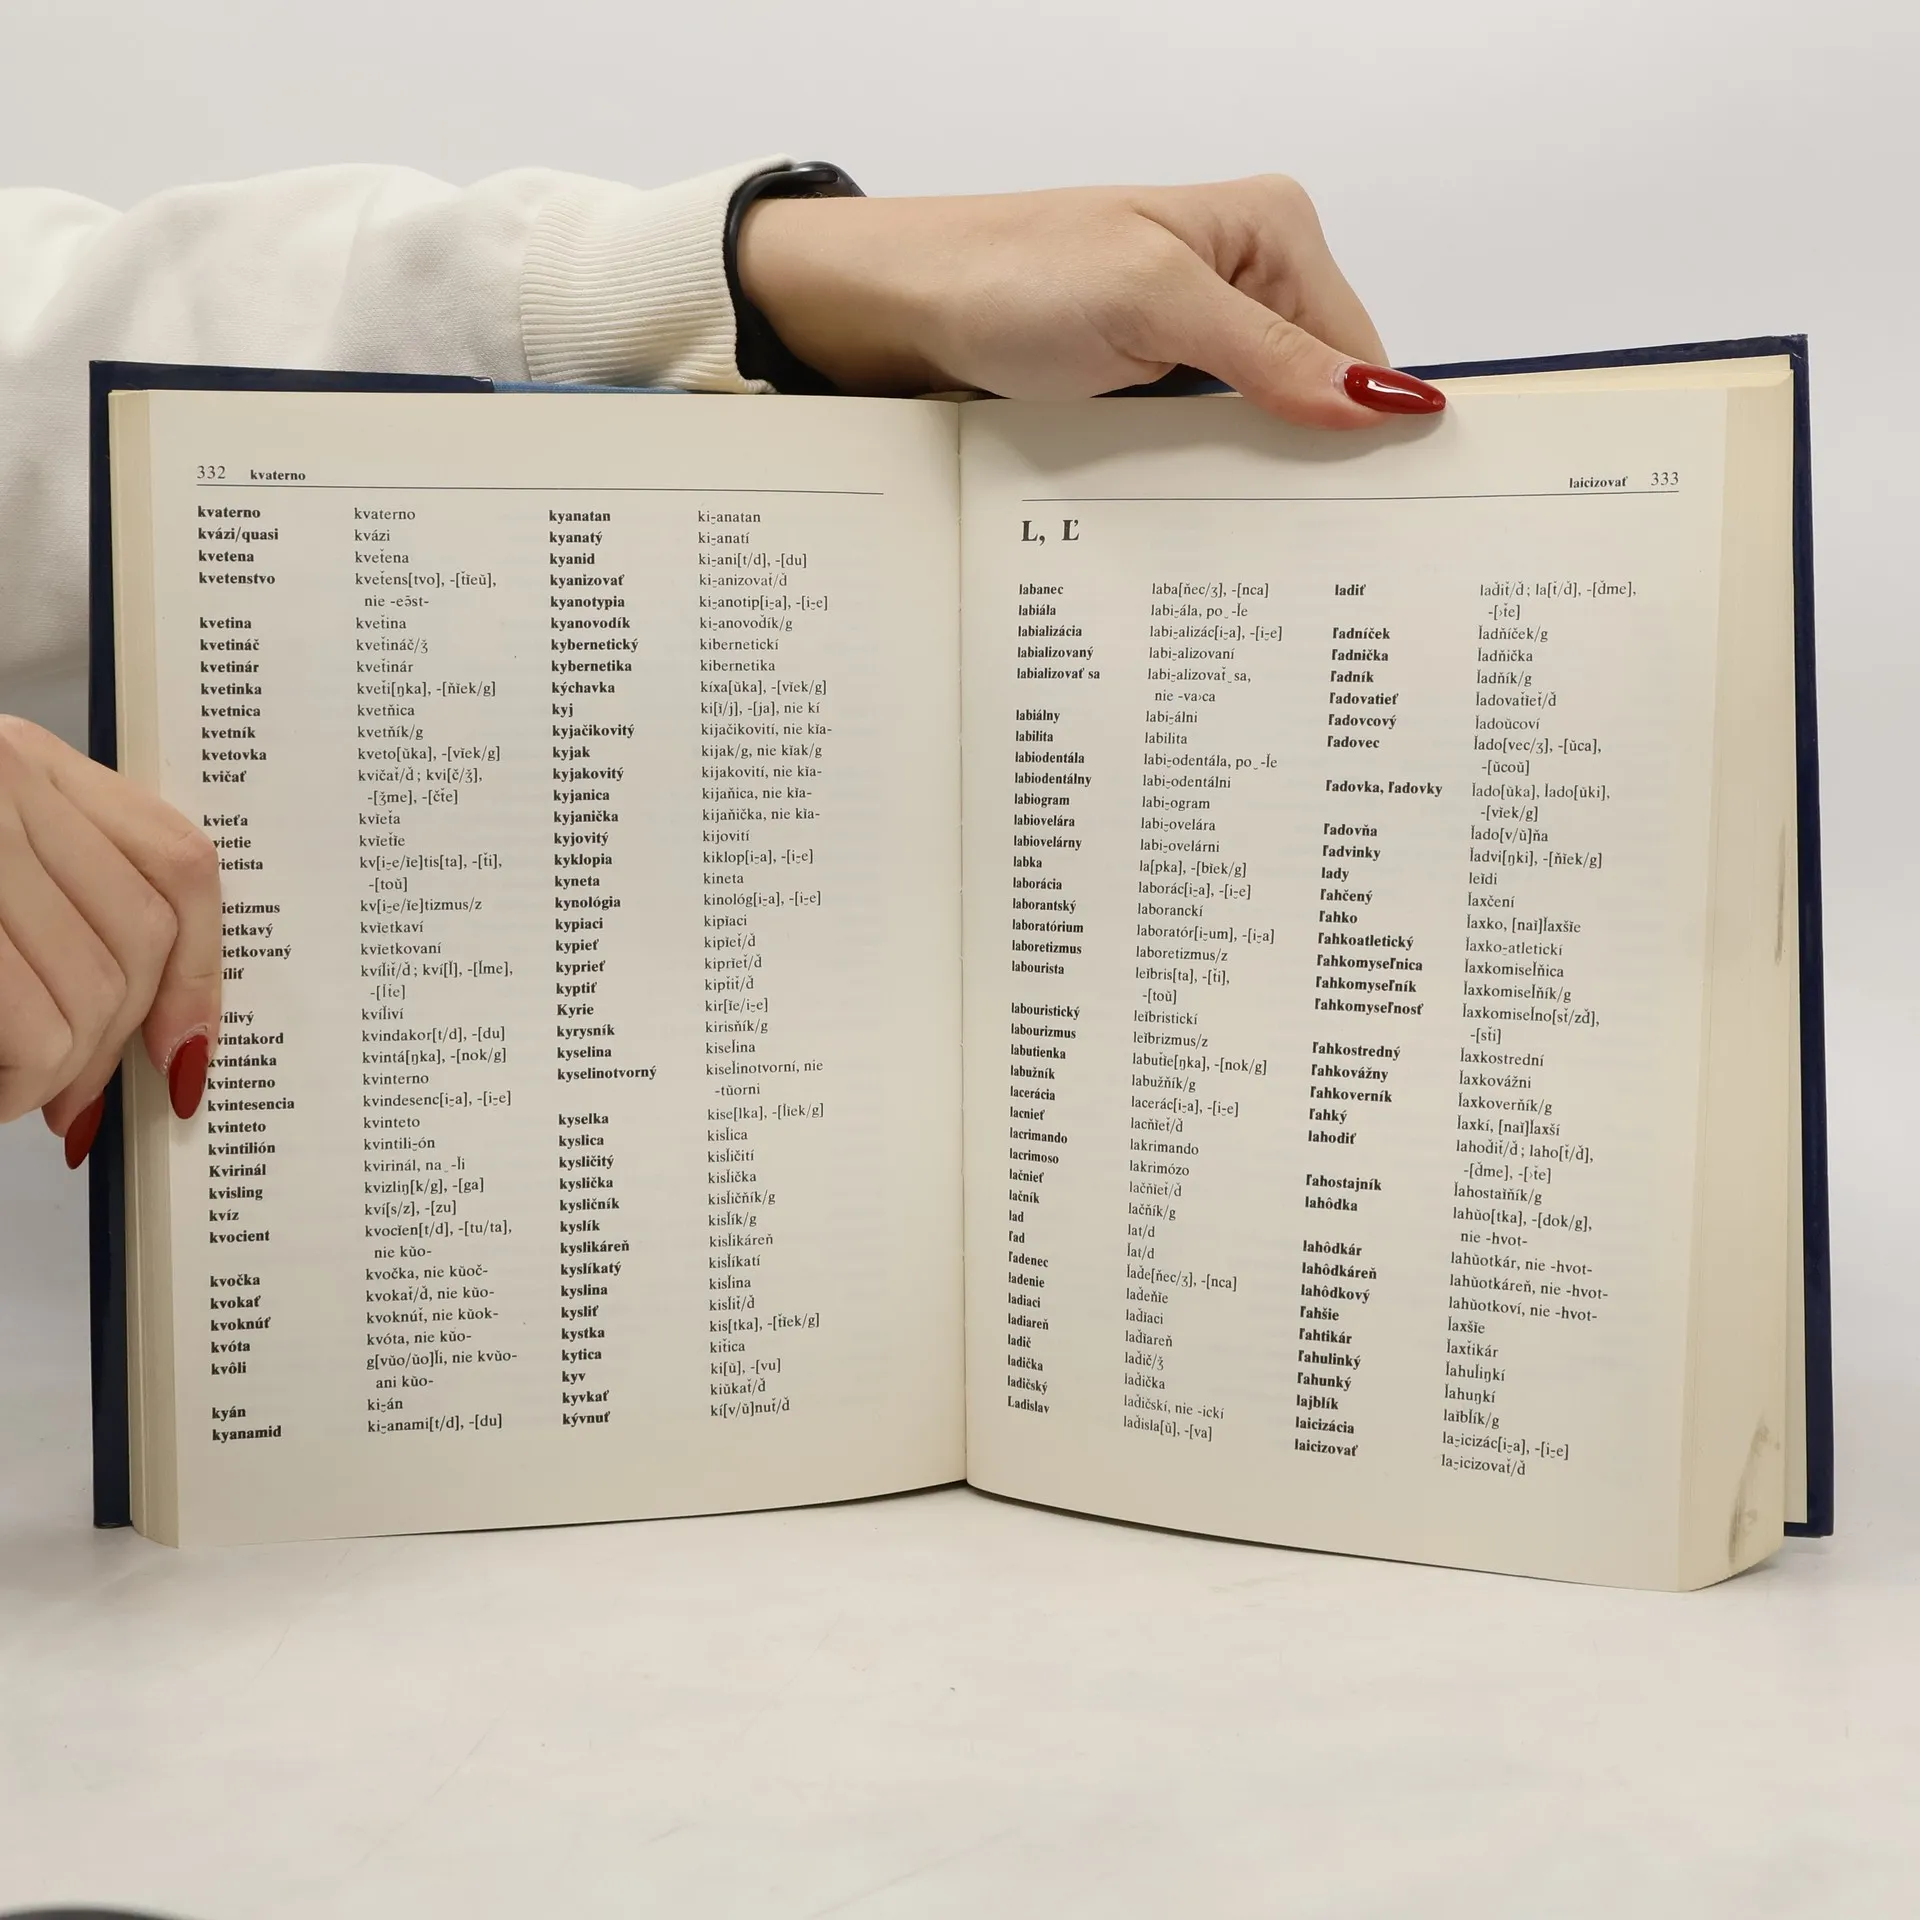 332 kvaterno
kvaterno kvaterno
kvázi/quasi kvázi
kvetena kveťena
kvetenstvo kveťens[tvo], -[ťĭeŭ],
nie -eəst-
kvetina kveťina
kvetináč kveťináč/ǯ
kvetinár kveťinár
kvetinka kveťi[ŋka], -[ňĭek/g]
kvetnica kvetňica
kvetník kvetňík/g
kvetovka kveto[ŭka], -[vĭek/g]
kvičať kvičať/ď; kvi[č/ǯ],
-[ǯme], -[čťe]
kvieťa kvĭeťa
vietie kvĭeťĭe
ietista kv[i-e/ĭe]tis[ta], -[ťi],
-[toŭ]
ietizmus kv[i-e/ĭe]tizmus/z
ietkavý kvĭetkaví
ietkovaný kvĭetkovaní
íliť kvíľiť/ď; kví[ľ], -[ľme],
-[ľťe]
ílivý kvíľiví
vintakord kvindakor[t/d], -[du]
kvintánka kvintá[ŋka], -[nok/g]
kvinterno kvinterno
kvintesencia kvindesenc[i-a], -[i-e]
kvinteto kvinteto
kvintilión kvintili-ón
Kvirinál kvirinál, na‿-ľi
kvisling kvizliŋ[k/g], -[ga]
kvíz kví[s/z], -[zu]
kvocient kvocĭen[t/d], -[tu/ta],
nie kŭo-
kvočka kvočka, nie kŭoč-
kvokať kvokať/ď, nie kŭo-
kvoknúť kvoknúť, nie kŭok-
kvóta kvóta, nie kŭo-
kvôli g[vŭo/ŭo]ľi, nie kvŭo-
ani kŭo-
kyán ki-án
kyanamid ki-anami[t/d], -[du]
kyanatan ki-anatan
kyanatý ki-anatí
kyanid ki-ani[t/d], -[du]
kyanizovať ki-anizovať/ď
kyanotypia ki-anotip[i-a], -[i-e]
kyanovodík ki-anovoďík/g
kybernetický kibernetickí
kybernetika kibernetika
kýchavka kíxa[ŭka], -[vĭek/g]
kyj ki[ĭ/j], -[ja], nie kí
kyjačikovitý kijačikovití, nie kĭa-
kyjak kijak/g, nie kĭak/g
kyjakovitý kijakovití, nie kĭa-
kyjanica kijaňica, nie kĭa-
kyjanička kijaňička, nie kĭa-
kyjovitý kijovití
kyklopia kiklop[i-a], -[i-e]
kyneta kineta
kynológia kinológ[i-a], -[i-e]
kypiaci kipĭaci
kypieť kipĭeť/ď
kyprieť kiprĭeť/ď
kyptiť kipťiť/ď
Kyrie kir[ĭe/i-e]
kyrysník kirisňík/g
kyselina kiseľina
kyselinotvorný kiseľinotvorní, nie
-tŭorni
kyselka kise[lka], -[ľĭek/g]
kyslica kisľica
kysličitý kisľičití
kyslička kisľička
kysličník kisľičňík/g
kyslík kisľík/g
kyslikáreň kisľikáreň
kyslíkatý kisľíkatí
kyslina kisľina
kysliť kisľiť/ď
kystka kis[tka], -[ťĭek/g]
kytica kiťica
kyv ki[ŭ], -[vu]
kyvkať kiŭkať/ď
kývnuť kí[v/ŭ]nuť/ď
laicizovať 333
L, Ľ
labanec laba[ňec/ʒ], -[nca]
labiála labi-ála, po‿-ľe
labializácia labi-alizác[i-a], -[i-e]
labializovaný labi-alizovaní
labializovať sa labi-alizovať‿sa,
nie -va›ca
labiálny labi-álni
labilita labilita
labiodentála labi-odentála, po‿-ľe
labiodentálny labi-odentálni
labiogram labi-ogram
labiovelára labi-ovelára
labiovelárny labi-ovelárni
labka la[pka], -[bĭek/g]
laborácia laborác[i-a], -[i-e]
laborantský laboranckí
laboratórium laboratór[i-um], -[i-a]
laboretizmus laboretizmus/z
labourista leĭbris[ta], -[ťi],
-[toŭ]
labouristický leĭbristickí
labourizmus leĭbrizmus/z
labutienka labuťĭe[ŋka], -[nok/g]
labužník labužňík/g
lacerácia lacerác[i-a], -[i-e]
lacnieť lacňĭeť/ď
lacrimando lakrimando
lacrimoso lakrimózo
lačnieť lačňĭeť/ď
lačník lačňík/g
lad lat/d
ľad ľat/d
ľadenec ľaďe[ňec/ʒ], -[nca]
ladenie laďeňĭe
ladiaci laďĭaci
ladiareň laďĭareň
ladič laďič/ǯ
ladička laďička
ladičský laďičskí, nie -ickí
Ladislav laďisla[ŭ], -[va]
ladiť laďiť/ď; la[ť/ď], -[ďme],
-[›ťe]
ľadníček ľadňíček/g
ľadnička ľadňička
ľadník ľadňík/g
ľadovatieť ľadovaťĭeť/ď
ľadovcový ľadoŭcoví
ľadovec ľado[vec/ʒ], -[ŭca],
-[ŭcoŭ]
ľadovka, ľadovky ľado[ŭka], ľado[ŭki],
-[vĭek/g]
ľadovňa ľado[v/ŭ]ňa
ľadvinky ľadvi[ŋki], -[ňĭek/g]
lady leĭdi
ľahčený ľaxčení
ľahko ľaxko, [naĭ]ľaxšĭe
ľahkoatletický ľaxko-atletickí
ľahkomyseľnica ľaxkomiseľňica
ľahkomyseľník ľaxkomiseľňík/g
ľahkomyseľnosť ľaxkomiseľno[sť/zď],
-[sťi]
ľahkostredný ľaxkostrední
ľahkovážny ľaxkovážni
ľahkoverník ľaxkoverňík/g
ľahký ľaxkí, [naĭ]ľaxší
lahodiť lahoďiť/ď; laho[ť/ď],
-[ďme], -[›ťe]
ľahostajník ľahostaĭňík/g
lahôdka lahŭo[tka], -[dok/g],
nie -hvot-
lahôdkár lahŭotkár, nie -hvot-
lahôdkáreň lahŭotkáreň, nie -hvot-
lahôdkový lahŭotkoví, nie -hvot-
ľahšie ľaxšĭe
ľahtikár ľaxťikár
ľahulinký ľahuľiŋkí
ľahunký ľahuŋkí
lajblík laĭbľík/g
laicizácia la-icizác[i-a], -[i-e]
laicizovať la-icizovať/ď